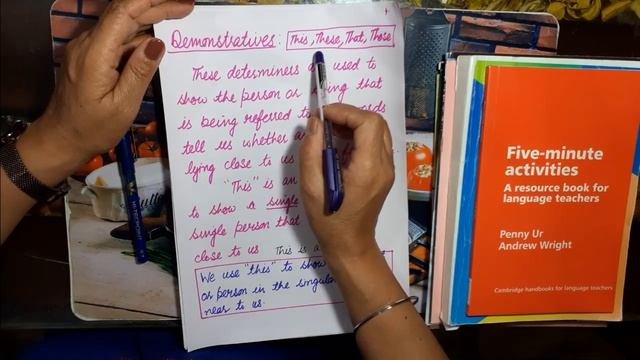 Demonstratives: This, These, That, Those
These determiners used to
show the person or thing that
is being referred to
tell us whether
lying close to us
"This" is an
to show a single
single person that
close to us This is a
We use "this" to show
or person in the singular
near to us.
Five-minute
activities
A resource book for
language teachers
Penny Ur
Andrew Wright
Cambridge handbooks for language teachers